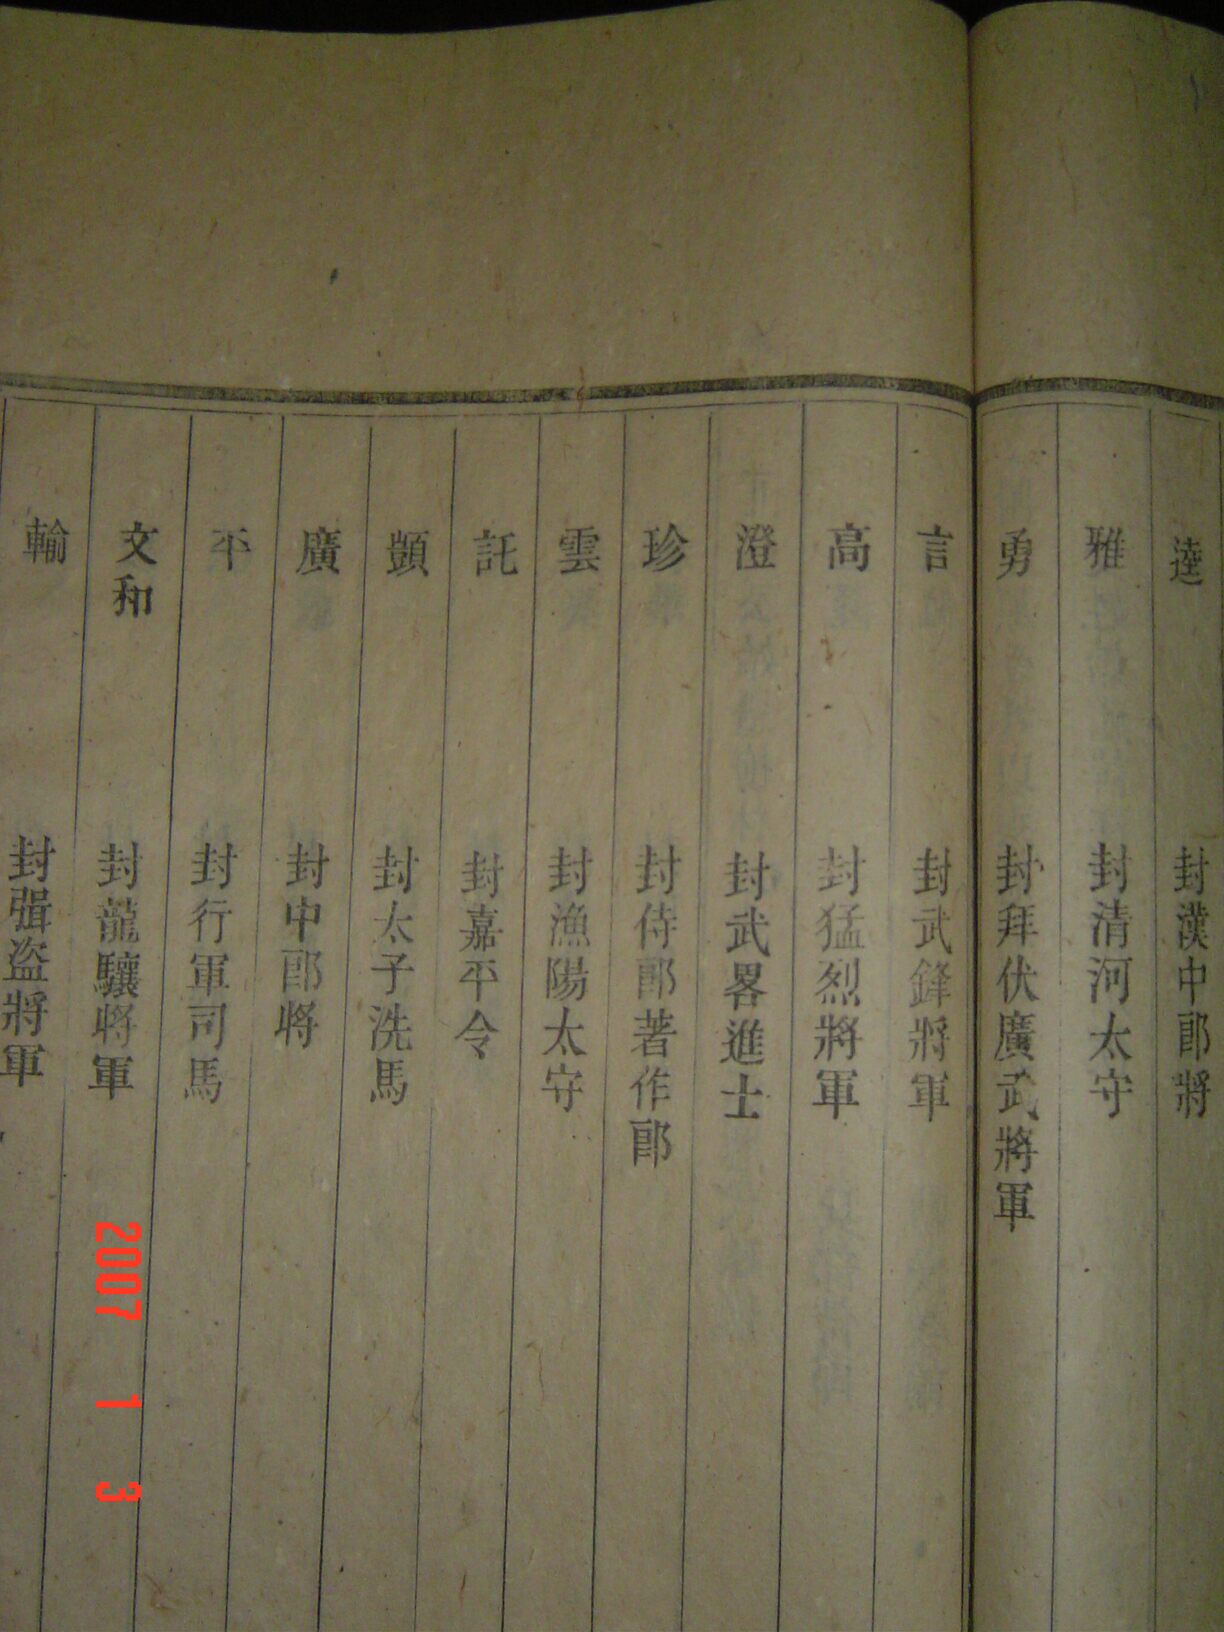 逹 封漢中郎將
雅 封清河太守
勇 封拜伏廣武將軍
言 封武鋒將軍
高 封猛烈將軍
澄 封武畧進士
珍 封侍郎著作郎
雲 封漁陽太守
託 封嘉平令
顗 封太子洗馬
廣 封中郎将
平 封行軍司馬
文和 封龍驤將軍
輸 封弭盜將軍
2007 1 3